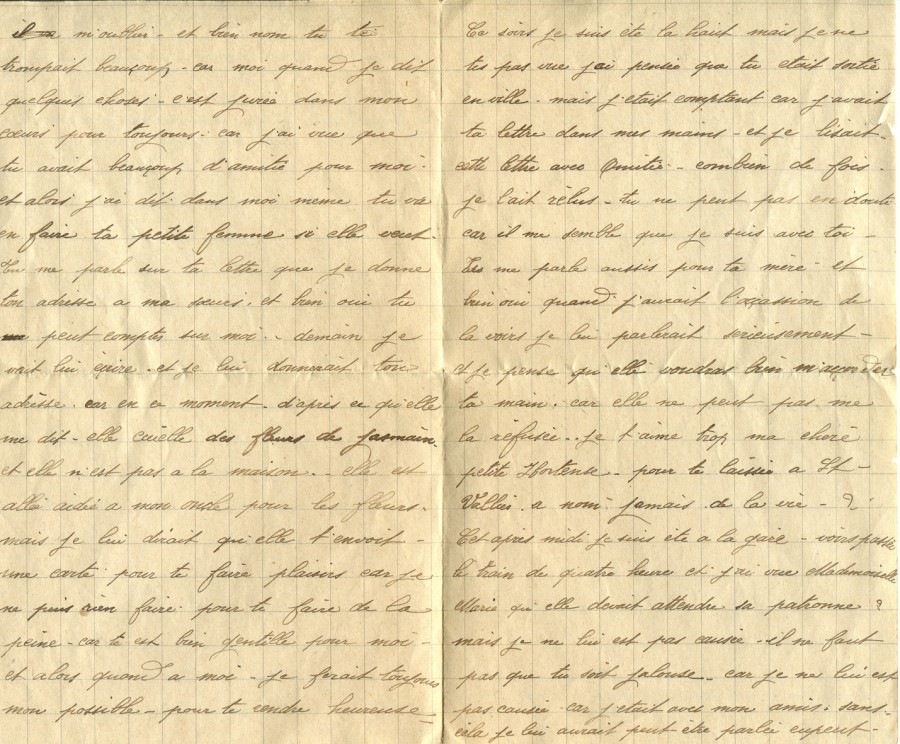 m'oublier - et bien nom tu te
trompait beaucoup - car moi quand je dit
quelques choses - c'est jurée dans mon
cœurs pour toujours : car j'ai vue que
tu avait beaucoup d'amitie pour moi -
et alors j'ai dit dans moi meme tu va
en faire ta petite femme si elle veut -
Tu me parle sur ta lettre que je donne
ton adresse a ma sœurs - et bien oui tu
peut compter sur moi - demain je
vait lui écrire - et je lui donnerait ton
adrèsse . car en ce moment - d'après ce qu'elle
me dit - elle cuëlle des fleurs de Jasmain -
et elle n'est pas a la maison - elle est
allé aidée a mon oncle pour les fleurs -
mais je lui dirait qu'elle t'envoit -
une carte pour te faire plaisirs car je
ne puis rien faire pour te faire de la
peine - car te est bien gentille pour moi -
et alors quand a moi - je ferait toujours
mon possible - pour te rendre heureuse -
Ce soirs je suis été la haut mais je ne
tes pas vue j'ai pensée que tu etait sortie
en ville - mais j'etait comptant car j'avait
ta lettre dans mes mains - et je lisait -
cette lettre avec amitié - combien de fois -
je l'ait rélus - tu ne peut pas en douté
car il me semble que je suis avec toi -
me parle aussis pour ta mère et
bien oui quand j'aurait l'occassion de
la voirs je lui parlerait serieusement -
et je pense qu'elle voudras bien m'accorder
ta main . car elle ne peut pas me
la réfusée - je t'aime trop ma cheré
petite Hortense - pour te laissée a St -
Vallier a nom jamais de la vie - ?
Cet après midi je suis été a la gare - voirs passé
le train de quatre heure et j'ai vue Mademoiselle
Marie qu'elle devait attendre sa patronne ?
mais je ne lui est pas causée - il ne faut
pas que tu soit jalouse - car je ne lui est
pas causée car j'etait avec mon amis : sans -
cela je lui aurait peut-etre parlée